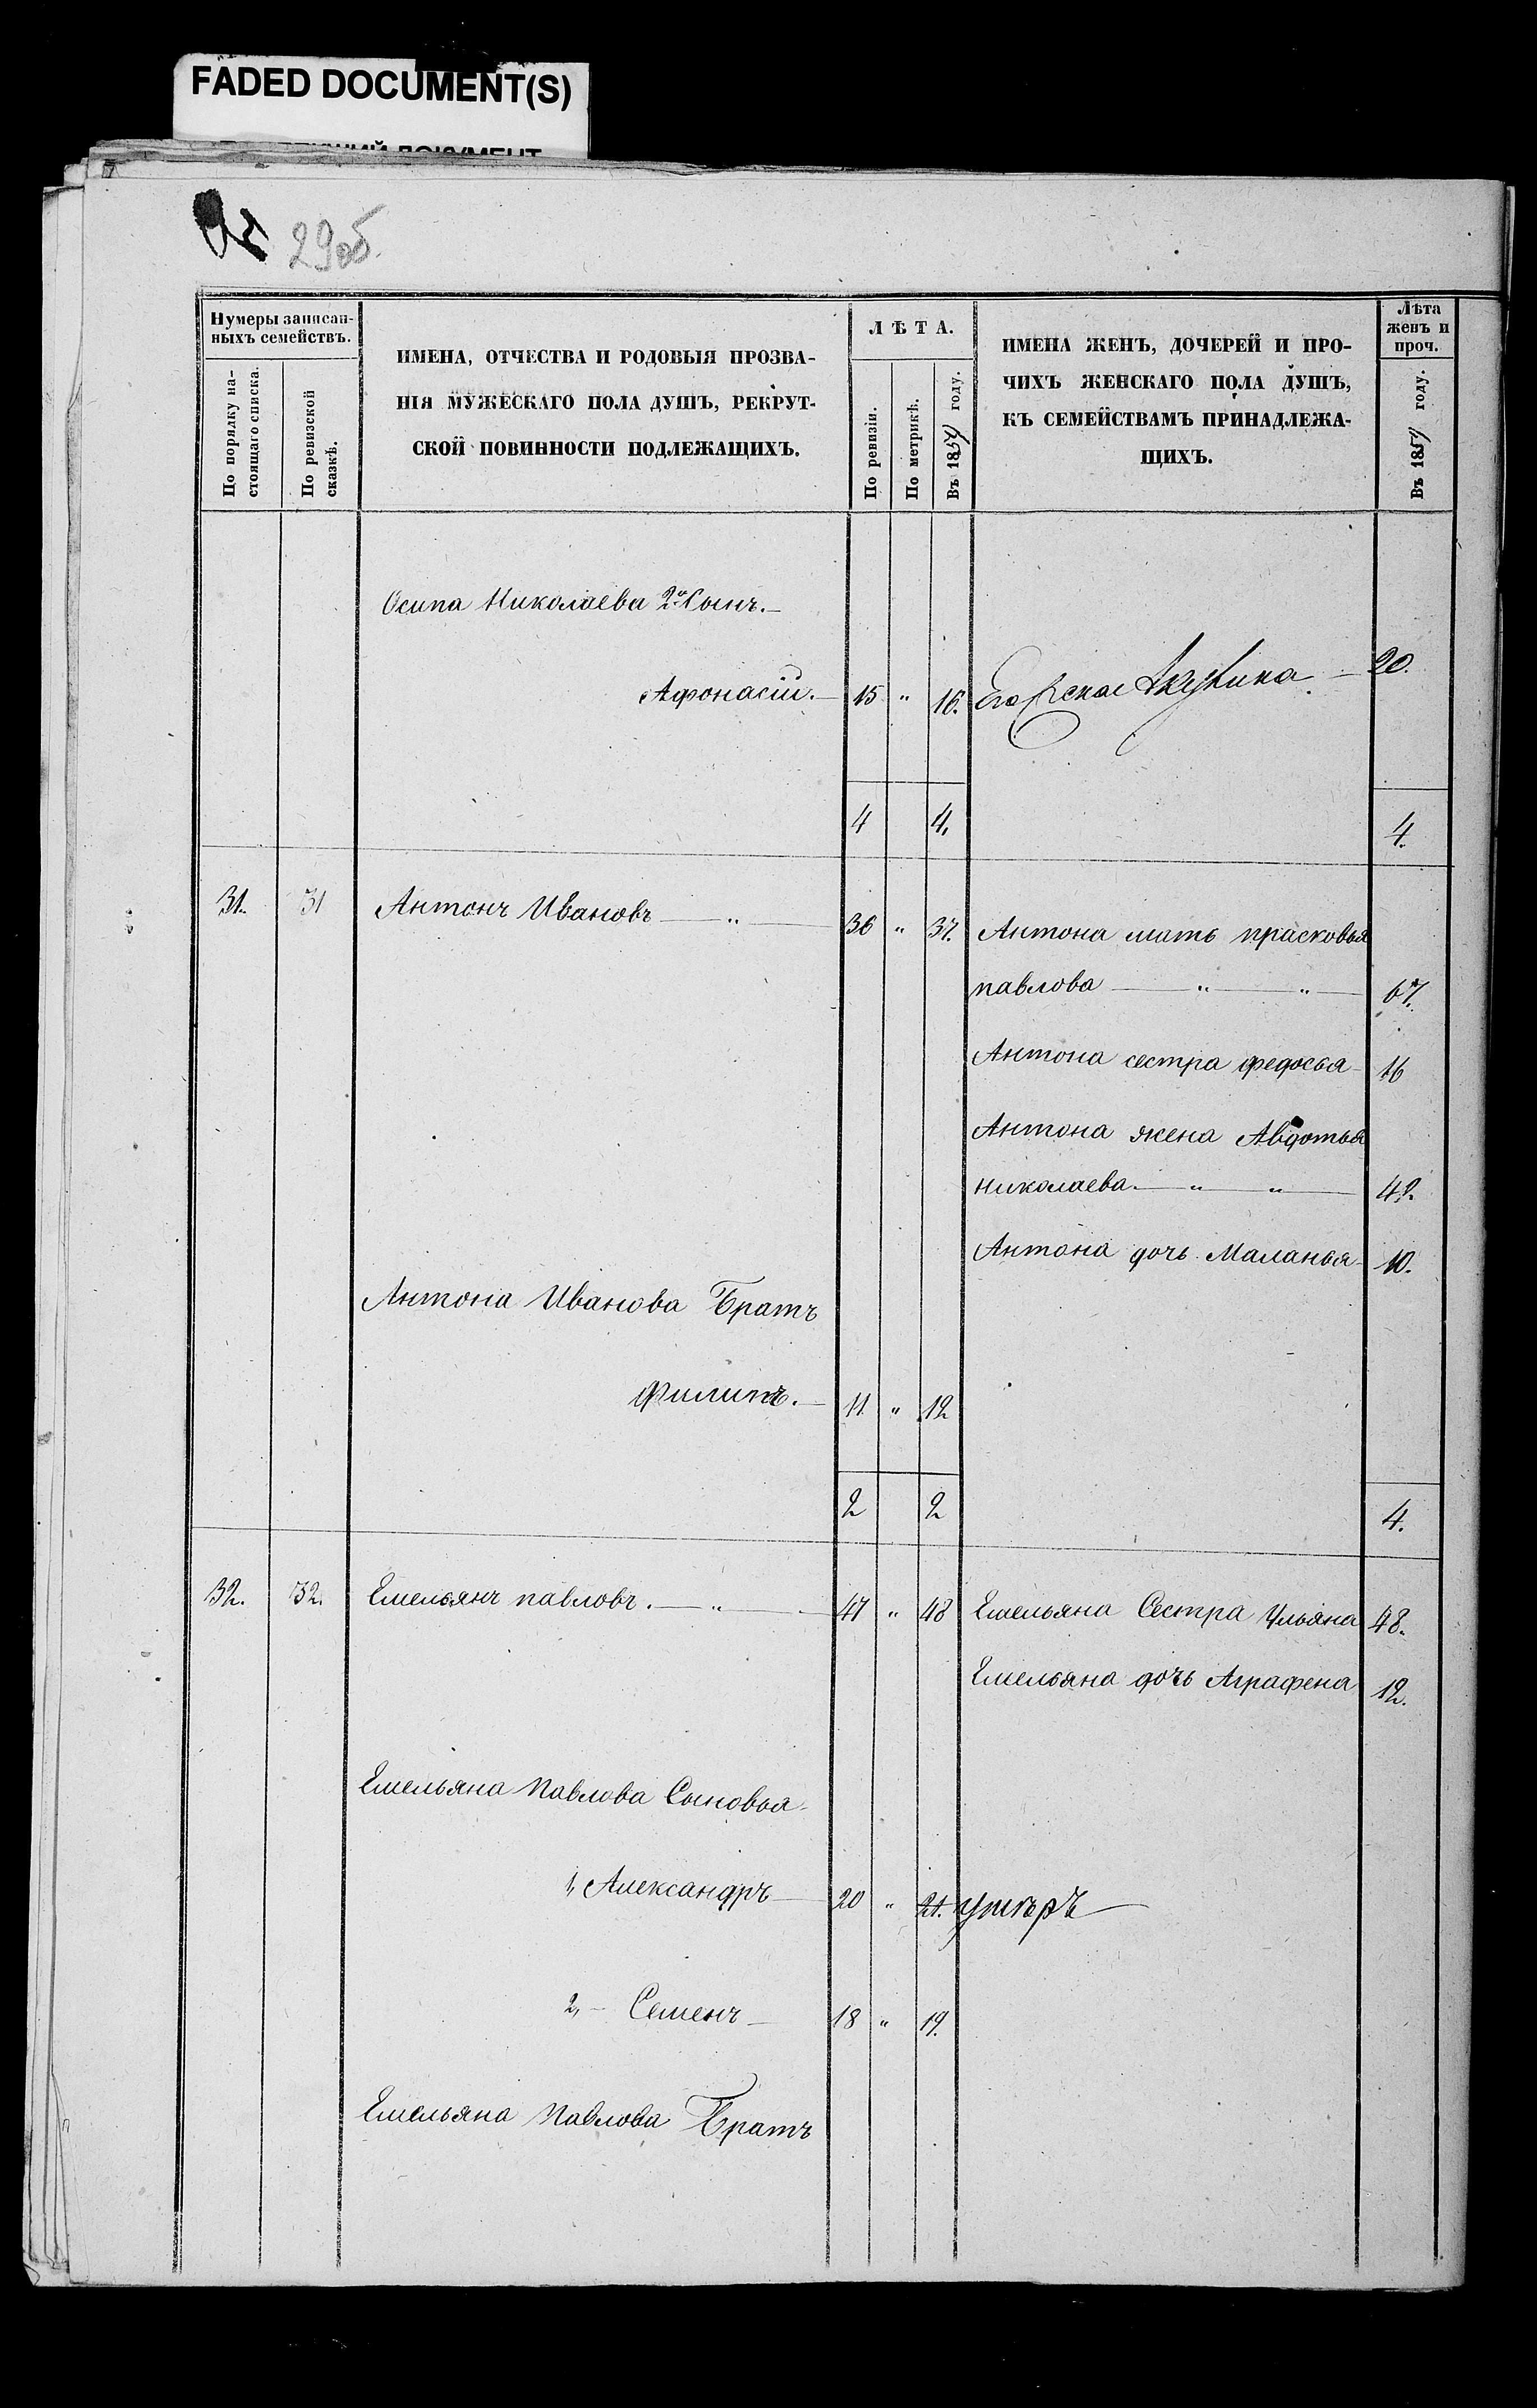 FADED DOCUMENT(S)
29об.
Нумеры записан-
ныхъ семействъ.
По порядку на-
стоящаго списка.
По ревизской
сказкѣ.
ИМЕНА, ОТЧЕСТВА И РОДОВЫЯ ПРОЗВА-
НІЯ МУЖЕСКАГО ПОЛА ДУШЪ, РЕКРУТ-
СКОЙ ПОВИННОСТИ ПОДЛЕЖАЩИХЪ.
ЛѢТА.
По ревизіи.
По метрикѣ.
Въ 1851 году.
ИМЕНА ЖЕНЪ, ДОЧЕРЕЙ И ПРО-
ЧИХЪ ЖЕНСКАГО ПОЛА ДУШЪ,
КЪ СЕМЕЙСТВАМЪ ПРИНАДЛЕЖА-
ЩИХЪ.
Лѣта
женъ и
проч.
Въ 1851 году.
Осипа Николаева 2й Сынъ.—
Афонасій.— 15 " 16. Его жена Акулина — 20.
4 4. 4.
31. 31 Антонъ Ивановъ — " — 36 " 37. Антона мать прасковья
павлова — " — " — 67.
Антона сестра федосья — 16
Антона жена Авдотья
николаева. — " — " — 42.
Антона дочь Маланья — 10.
Антона Иванова Братъ
Филипъ. — 11 " 12
2 2 4.
32. 32. Емельянъ павловъ. — " — 47 " 48 Емельяна Сестра Ульяна 48.
Емельяна дочь Аграфена 12.
Емельяна Павлова Сыновья.
1, Александръ — 20 " 21. умеръ —
2, — Семенъ — 18 " 19.
Емельяна Павлова Братъ